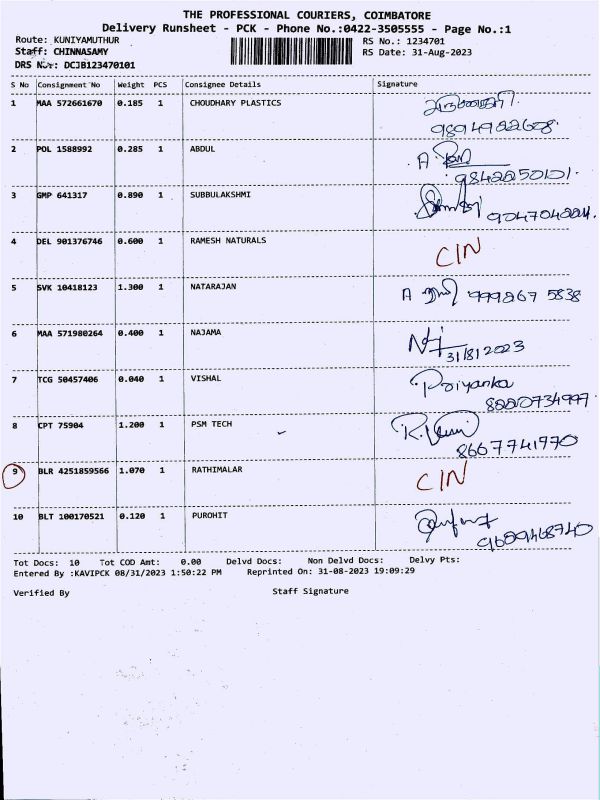 THE PROFESSIONAL COURIERS, COIMBATORE
Delivery Runsheet - PCK - Phone No.:0422-3505555 - Page No.:1
Route: KUNIYAMUTHUR RS No.: 1234701
Staff: CHINNASAMY RS Date: 31-Aug-2023
DRS No.: DCJB123470101
S No Consignment No Weight PCS Consignee Details Signature
1 MAA 572661670 0.185 1 CHOUDHARY PLASTICS
9894982608
2 POL 1588992 0.285 1 ABDUL A
9842250101
3 GMP 641317 0.890 1 SUBBULAKSHMI
4 DEL 901376746 0.600 1 RAMESH NATURALS CIN
5 SVK 10418123 1.300 1 NATARAJAN A 999867 5838
6 MAA 571980264 0.400 1 NAJAMA
31/8/2023
7 TCG 50457406 0.040 1 VISHAL Priyanka
8 CPT 75904 1.200 1 PSM TECH
8667741770
9 BLR 4251859566 1.070 1 RATHIMALAR CIN
10 BLT 100170521 0.120 1 PUROHIT
9689468740
Tot Docs: 10 Tot COD Amt: 0.00 Delvd Docs: Non Delvd Docs: Delvy Pts:
Entered By :KAVIPCK 08/31/2023 1:50:22 PM Reprinted On: 31-08-2023 19:09:29
Verified By Staff Signature